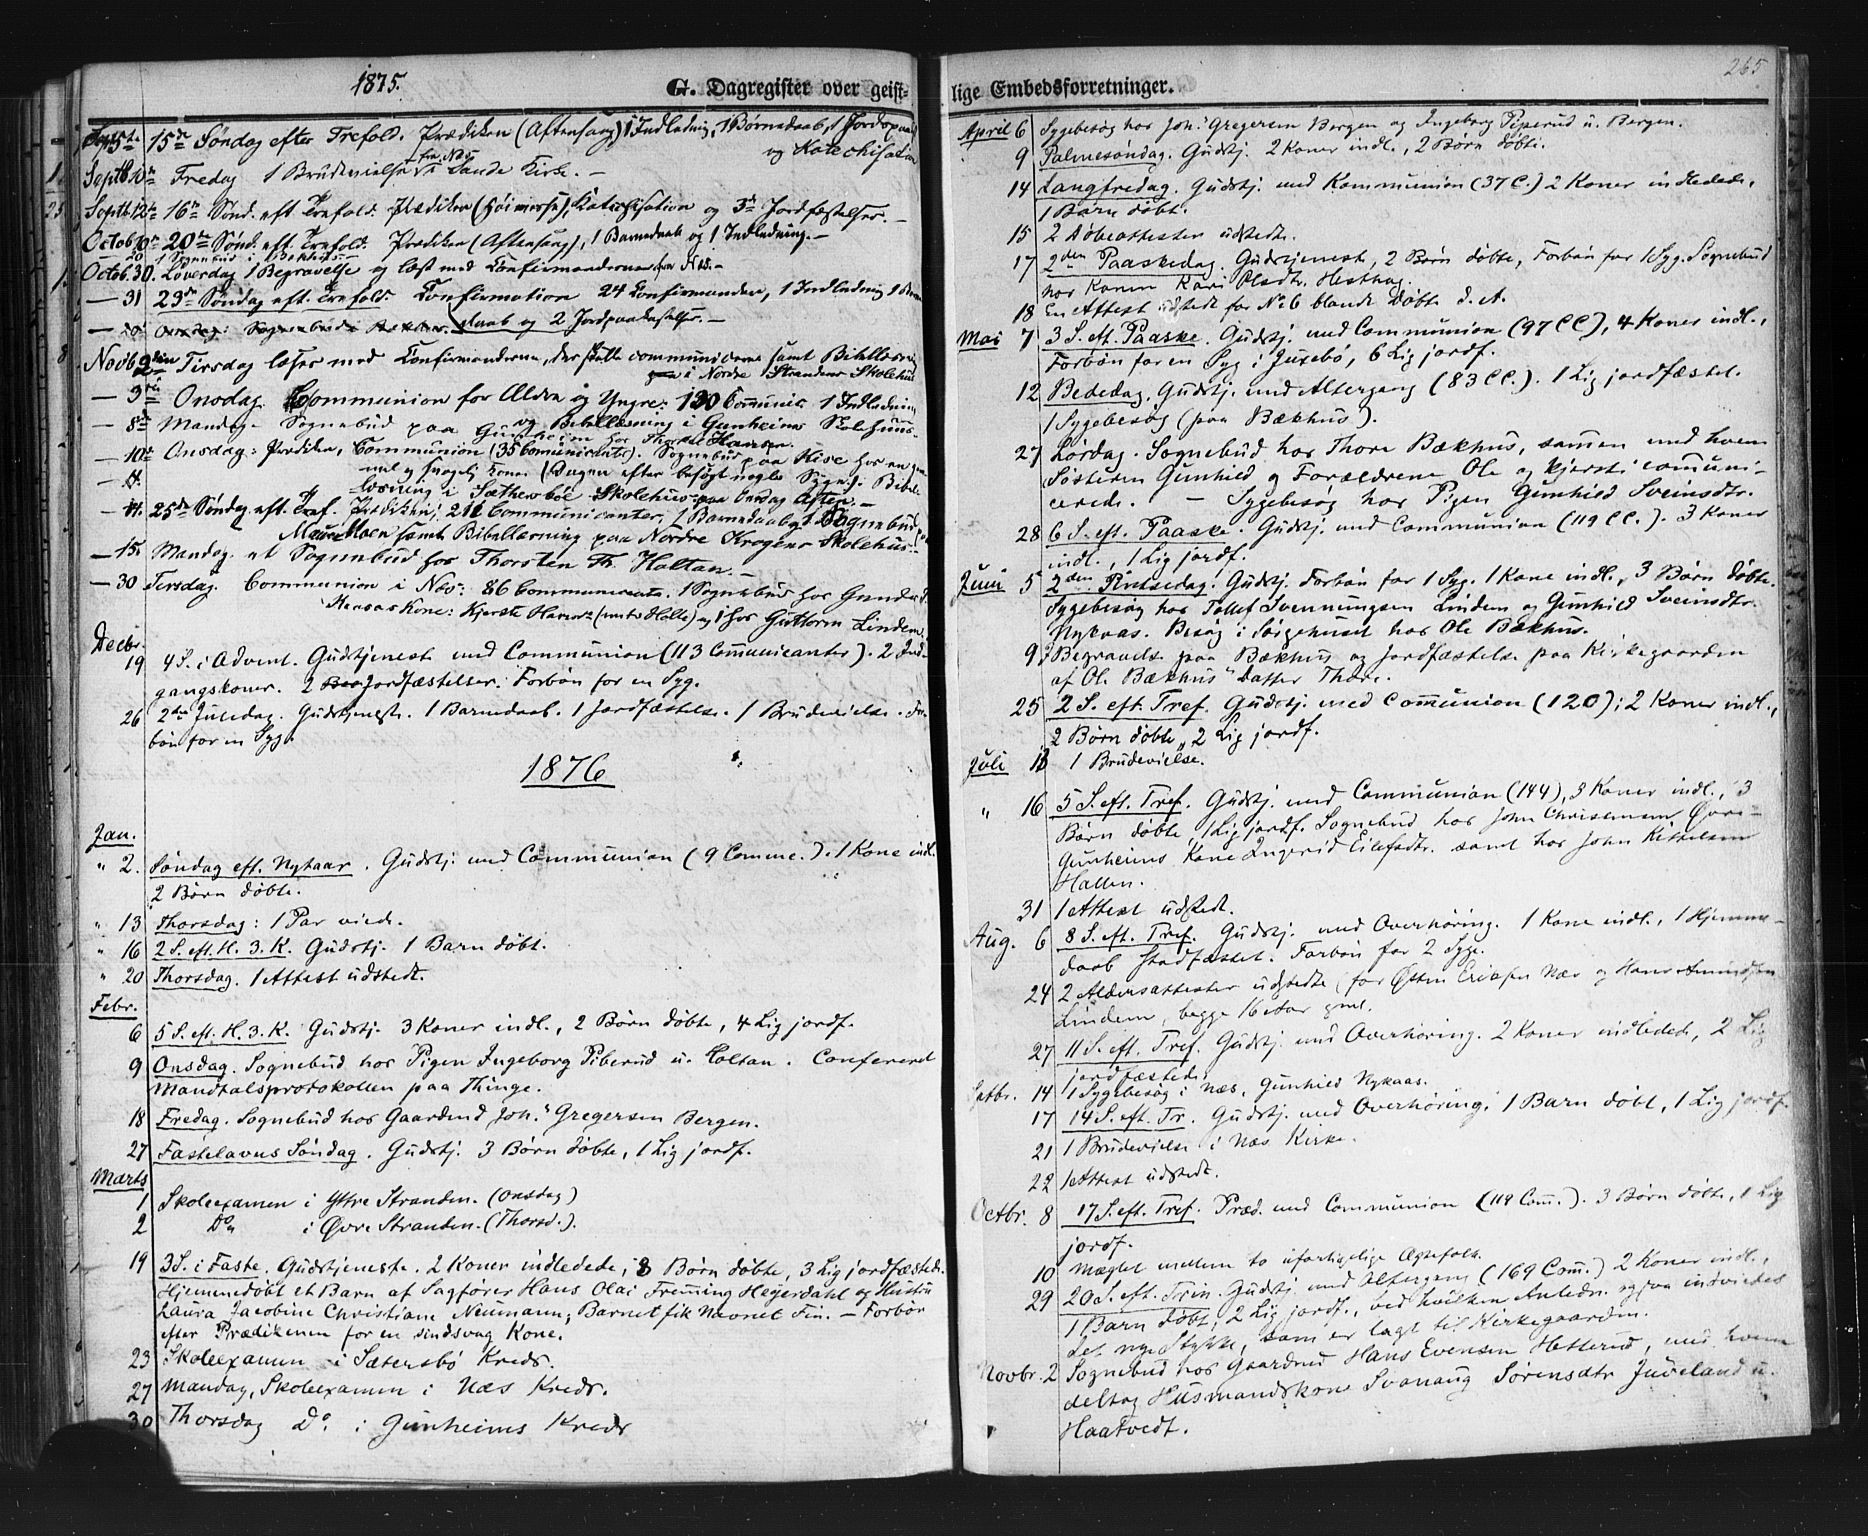 1875.
G. Dagregister over geist-
Sept. 5te 15de Søndag efter Trefold. Prædiken (Aftensang), 1 Indledning, 1 Børnedaab, 1 Jordpaak.
og Katechisation
Septb. 10de Fredag 1 Brudevielse fra Næs i Sande Kirke. —
Septb. 12te 16de Sønd. eft. Trefold. Prædiken (Høimesse), Katechisation og 3de Jordfæstelser. —
Octob. 10de 20de Sønd. eft. Trefold. Prædiken (Aftensang), 1 Barnedaab og 1 Indledning. —
— 20 1 Sognebud i Bækhus —
Octob. 30. Løverdag 1 Begravelse og læst med Confirmanderne fra Næs. —
— 31 23de Søndag eft. Trefold. Confirmation 24 Confirmander, 1 Indledning 1 Barne
daab og 2 Jordpaakastelser. —
Novb. 2den Tirsdag læser med Confirmanderne, der skulle communicere samt Bibellæsning
i Nordre Strandens Skolehus
— 3die Onsdag. Communion for Ældre og Yngre: 130 Communic. 1 Indledning
og Bibellæsning i Gunheims Skolehuus.
— 8de Mandag. Sognebud paa Gunheim hos Thorste Hansen.
— 10de Onsdag: Prædiken, Communion (35 Communicants). Sognebud paa Kise hos en gam
mel og svagelig Kone. (Dagen efter besøgt nogle Syge): Bibel
læsning i Sætherbøe Skolehus paa Onsdag Aften. —
— 14. 25de Søndag eft. Tref. Prædiken; 211 Communicanter, 1 Barnedaab og 1 Sognebud
Moen samt Bibellæsning paa Nordre Krogens Skolehus. —
— 15. Mandag. et Sognebud hos Thorsten Th. Holtan. —
— 30 Tirsdag. Communion i Næs: 86 Communicants. 1 Sognebud hos Gunder
Hansas Kone: Kjerste Hansdr (under Holle) og 1 hos Guttorm Linden.
Decbr.
19 4 S. i Advent. Gudstjeneste med Communion (113 Communicanter). 2 Ind-
gangskoner. 2 Jordfæstelser. Forbøn for en Syg.
26 2den Juledag. Gudstjeneste. 1 Barnedaab. 1 Jordfæstelse. 1 Brudevielse. For
bøn for en Syg.
1876
Jan.
" 2. Søndag eft. Nytaar. Gudstj. med Communion (9 Comme.). 1 Kone indl.
2 Børn døbte.
" 13 Thorsdag: 1 Par viede.
" 16 2 S. eft. H. 3. K. Gudstj. 1 Barn døbt.
" 20 Thorsdag. 1 Attest udstedt.
Febr.
6 5 S. eft. H. 3. K. Gudstj. 3 Koner indl., 2 Børn døbte, 4 Lig jordf.
9 Onsdag. Sognebud hos Pigen Ingeborg Piberud u. Holtan. Confereret
Mandtalsprotokollen paa Thinge.
18 Fredag. Sognebud hos Gaardmd Joh.s Gregersen Bergen.
27 Fastelavns Søndag. Gudstj. 3 Børn døbte, 1 Lig jordf.
Marts
1 Skoleexamen i Ytre Stranden. (Onsdag)
2 Do i Øvre Stranden. (Thorsd.).
19 3 S. i Faste. Gudstjeneste. 2 Koner indledede, 3 Børn døbte, 3 Lig jordfæstede.
Hjemmedøbt et Barn af Sagfører Hans Olai Fremming Heyerdahl og Hustru
Laura Jacobine Christiane Neumann; Barnet fik Navnet Fin. — Forbøn
efter Prædikenen for en sindsvag Kone.
23 Skoleexamen i Sætersbø Kreds.
27 Mandag, Skoleexamen i Næs Kreds.
30 Thorsdag Do. i Gunheims Kreds
265
lige Embedsforretninger.
April 6 Sygebesøg hos Joh.s Gregersen Bergen og Ingeborg Piperud u. Bergen.
9 Palmesøndag. Gudstj. 2 Koner indl., 2 Børn døbte.
14 Langfredag. Gudstj. med Kommunion (37 C.) 2 Koner indledede,
1 Barn døbt.
15 2 Døbeattester udstedte.
17 2den Paaskedag. Gudstjeneste, 2 Børn døbte, Forbøn for 1 Syg. Sognebud
hos Konen Kari Olsdtr. Hesthag.
18 En Attest udstedt for No 6 blandt Døbte d. A.
Mai 7 3 S. eft. Paaske. Gudstj. med Communion (97 CC), 4 Koner indl.,
Forbøn for en Syg i Juxebø, 6 Lig jordf.
12 Bededag. Gudstj. med Altergang (83 CC.). 1 Lig jordfæstet.
1 Sygebesøg (paa Bækhus).
27 Lørdag. Sognebud hos Thore Bækhus, sammen med hvem
Søsteren Gunhild og Forældrene Ole og Kjersti communi-
cerede. — Sygebesøg hos Pigen Gunhild Sveinsdtr.
28 6 S. eft. Paaske. Gudstj. med Communion (119 CC.). 3 Koner
indl., 1 Lig jordf.
Juni 5 2den Pintsedag. Gudstj. Forbøn for 1 Syg. 1 Kone indl., 3 Børn døbte.
Sygebesøg hos Tollef Svennungsen Linden og Gunhild Sveinsdtr.
Nykaas. Besøg i Sørgehuset hos Ole Bækhus.
9 Begravelse paa Bækhus og Jordfæstelse paa Kirkegaarden
af Ole Bækhus' Datter Thore.
25 2 S. eft. Tref. Gudstj. med Communion (120); 2 Koner indl.,
2 Børn døbte, 2 Lig jordf.
Juli 13 1 Brudevielse.
" 16 5 S. eft. Tref. Gudstj. med Communion (144), 3 Koner indl., 3
Børn døbte, 1 Lig jordf. Sognebud hos John Christensen Øvre-
Gunheims Kone Ingerid Eilefsdtr. samt hos John Kittelsen
Hallen.
31 1 Attest udstedt.
Aug. 6 8 S. eft. Tref. Gudstj. med Overhøring. 1 Kone indl., 1 Hjemme-
daab stadfæstet. Forbøn for 2 Syge.
24 2 Aldersattester udstedte, for Østen Eriksen Næs og Hans Amundsen
Linden, begge 16 Aar gml.
27 11 S. eft. Tref. Gudstj. med Overhøring. 2 Koner indledede, 2 Lig
jordfæstede.
Septbr. 14 1 Sygebesøg i Næs, Gunhild Nykaas.
17 14 S. eft. Tr. Gudstj. med Overhøring. 1 Barn døbt, 1 Lig jordf.
21 1 Brudevielse i Næs Kirke.
22 1 Attest udstedt.
Octbr. 8 17 S. eft. Tref. Præd. med Communion (119 Com.). 3 Børn døbte, 1 Lig
jordf.
10 Mæglet mellem to uforligelige Ægtefolk.
29 20 S. eft. Trin. Gudstj. med Altergang (169 Com.) 2 Koner indl.,
1 Barn døbt, 2 Lig jordf., ved hvilken Anledn. ogsaa indviedes
det nye Stykke, som er lagt til Kirkegaarden.
Novbr. 2 Sognebud hos Gaardmd Hans Evensen Hetterud, med hvem
deltog Husmandskone Svanaug Sørensdtr Juveland u.
Haatvedt.